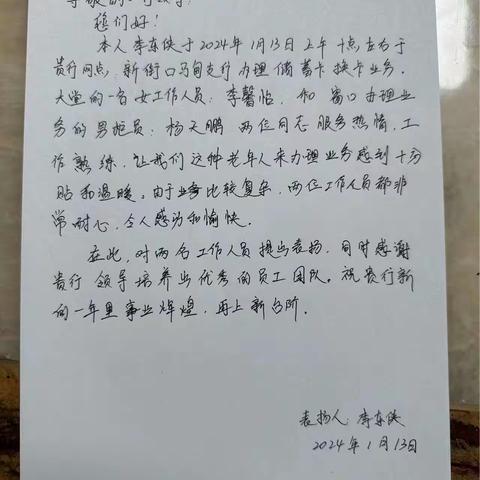 您们好！
本人李东侠于2024年1月13日上午十点左右于
贵行网点，新街口马甸支行办理储蓄卡换卡业务。
大堂的一名女工作人员：李馨怡，和窗口办理业
务的男柜员：杨天鹏两位同志服务热情，工
作熟练，让我们这种老年人来办理业务感到十分
贴和温暖。由于业务比较复杂，两位工作人员都非
常耐心，令人感动和愉快。
在此，对两名工作人员提出表扬，同时感谢
贵行领导培养出优秀的员工团队。祝贵行新
的一年里事业辉煌，再上新台阶。
表扬人：李东侠
2024年1月13日